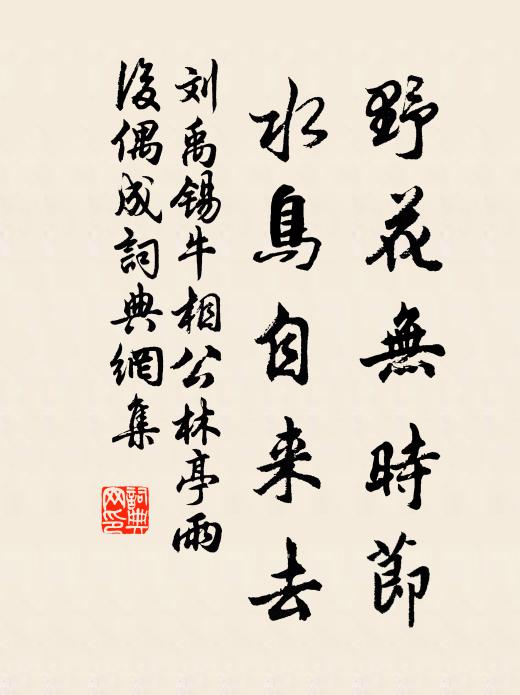 野花無時節
水鳥自来去
刘禹锡牛相公林亭雨
後偶成詞典網集
詞典
网印